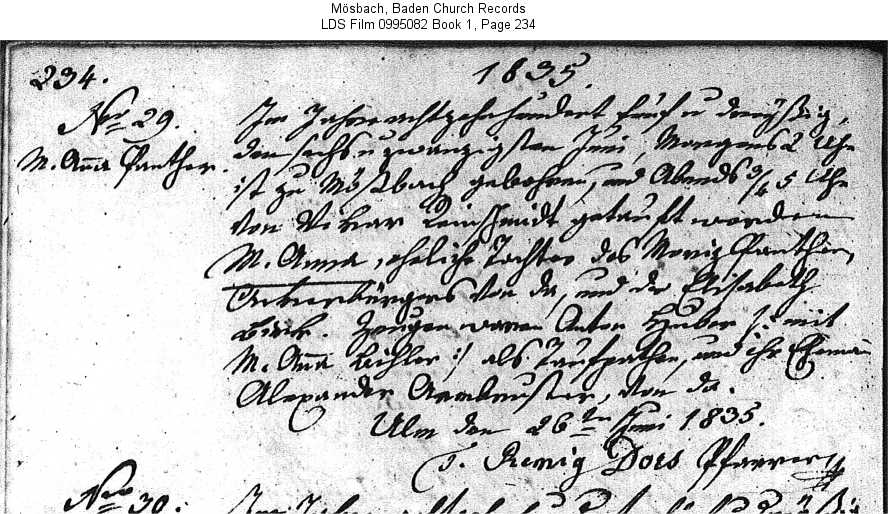 Mösbach, Baden Church Records
LDS Film 0995082 Book 1, Page 234
234. 1835.
Nro 29.
M. Anna Panther
Im Jahre achtzehnhundert fünf u dreyßig,
den sechs u zwanzigsten Juni, Morgens 2 Uhr
ist zu Mösbach gebohren, und Abends 3/4 5 Uhr
von Vikar getauft worden
M. Anna, eheliche Tochter des Moriz Panther,
Ackersbürgers von da, und der Elisabeth
Birk. Zeugen waren Anton Huber /: mit
M. Anna Bihler :/ als Taufpathen, und ihr Eheman
Alexander Armbruster, von da.
Ulm den 26ten Juni 1835.
Pfarrer
Nro 30.
Im Jahre